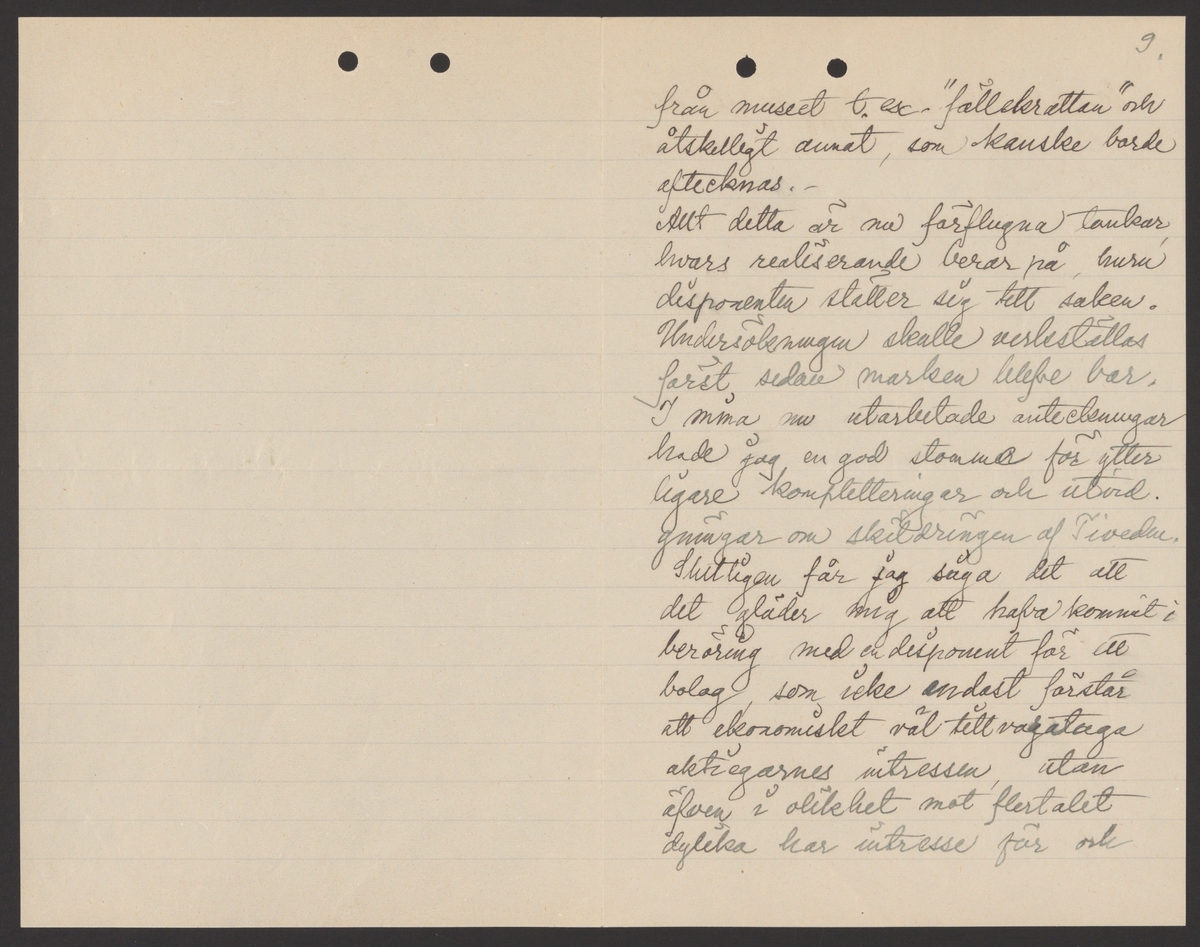 9.
från museet t. ex. "fällekrattan" och
åtskelligt annat, som kanske borde
aftecknas. –
Allt detta är nu förflugna tankar,
hvars realiserande beror på, huru
disponenten ställer sig till saken.
Undersökningen skulle verkställas
först sedan marken blefve bar.
I mina nu utarbetade anteckningar
hade jag en god stomme för ytter
ligare kompletteringar och utvid.
gningar om skildringen af Tiveden.
Slutligen får jag säga det att
det gläder mig att hafva kommit i
beröring med en disponent för ett
bolag, som icke endast förstår
att ekonomiskt väl tillvarataga
aktiegarnes intressen, utan
äfven i olikhet mot flertalet
dylika har intresse för och